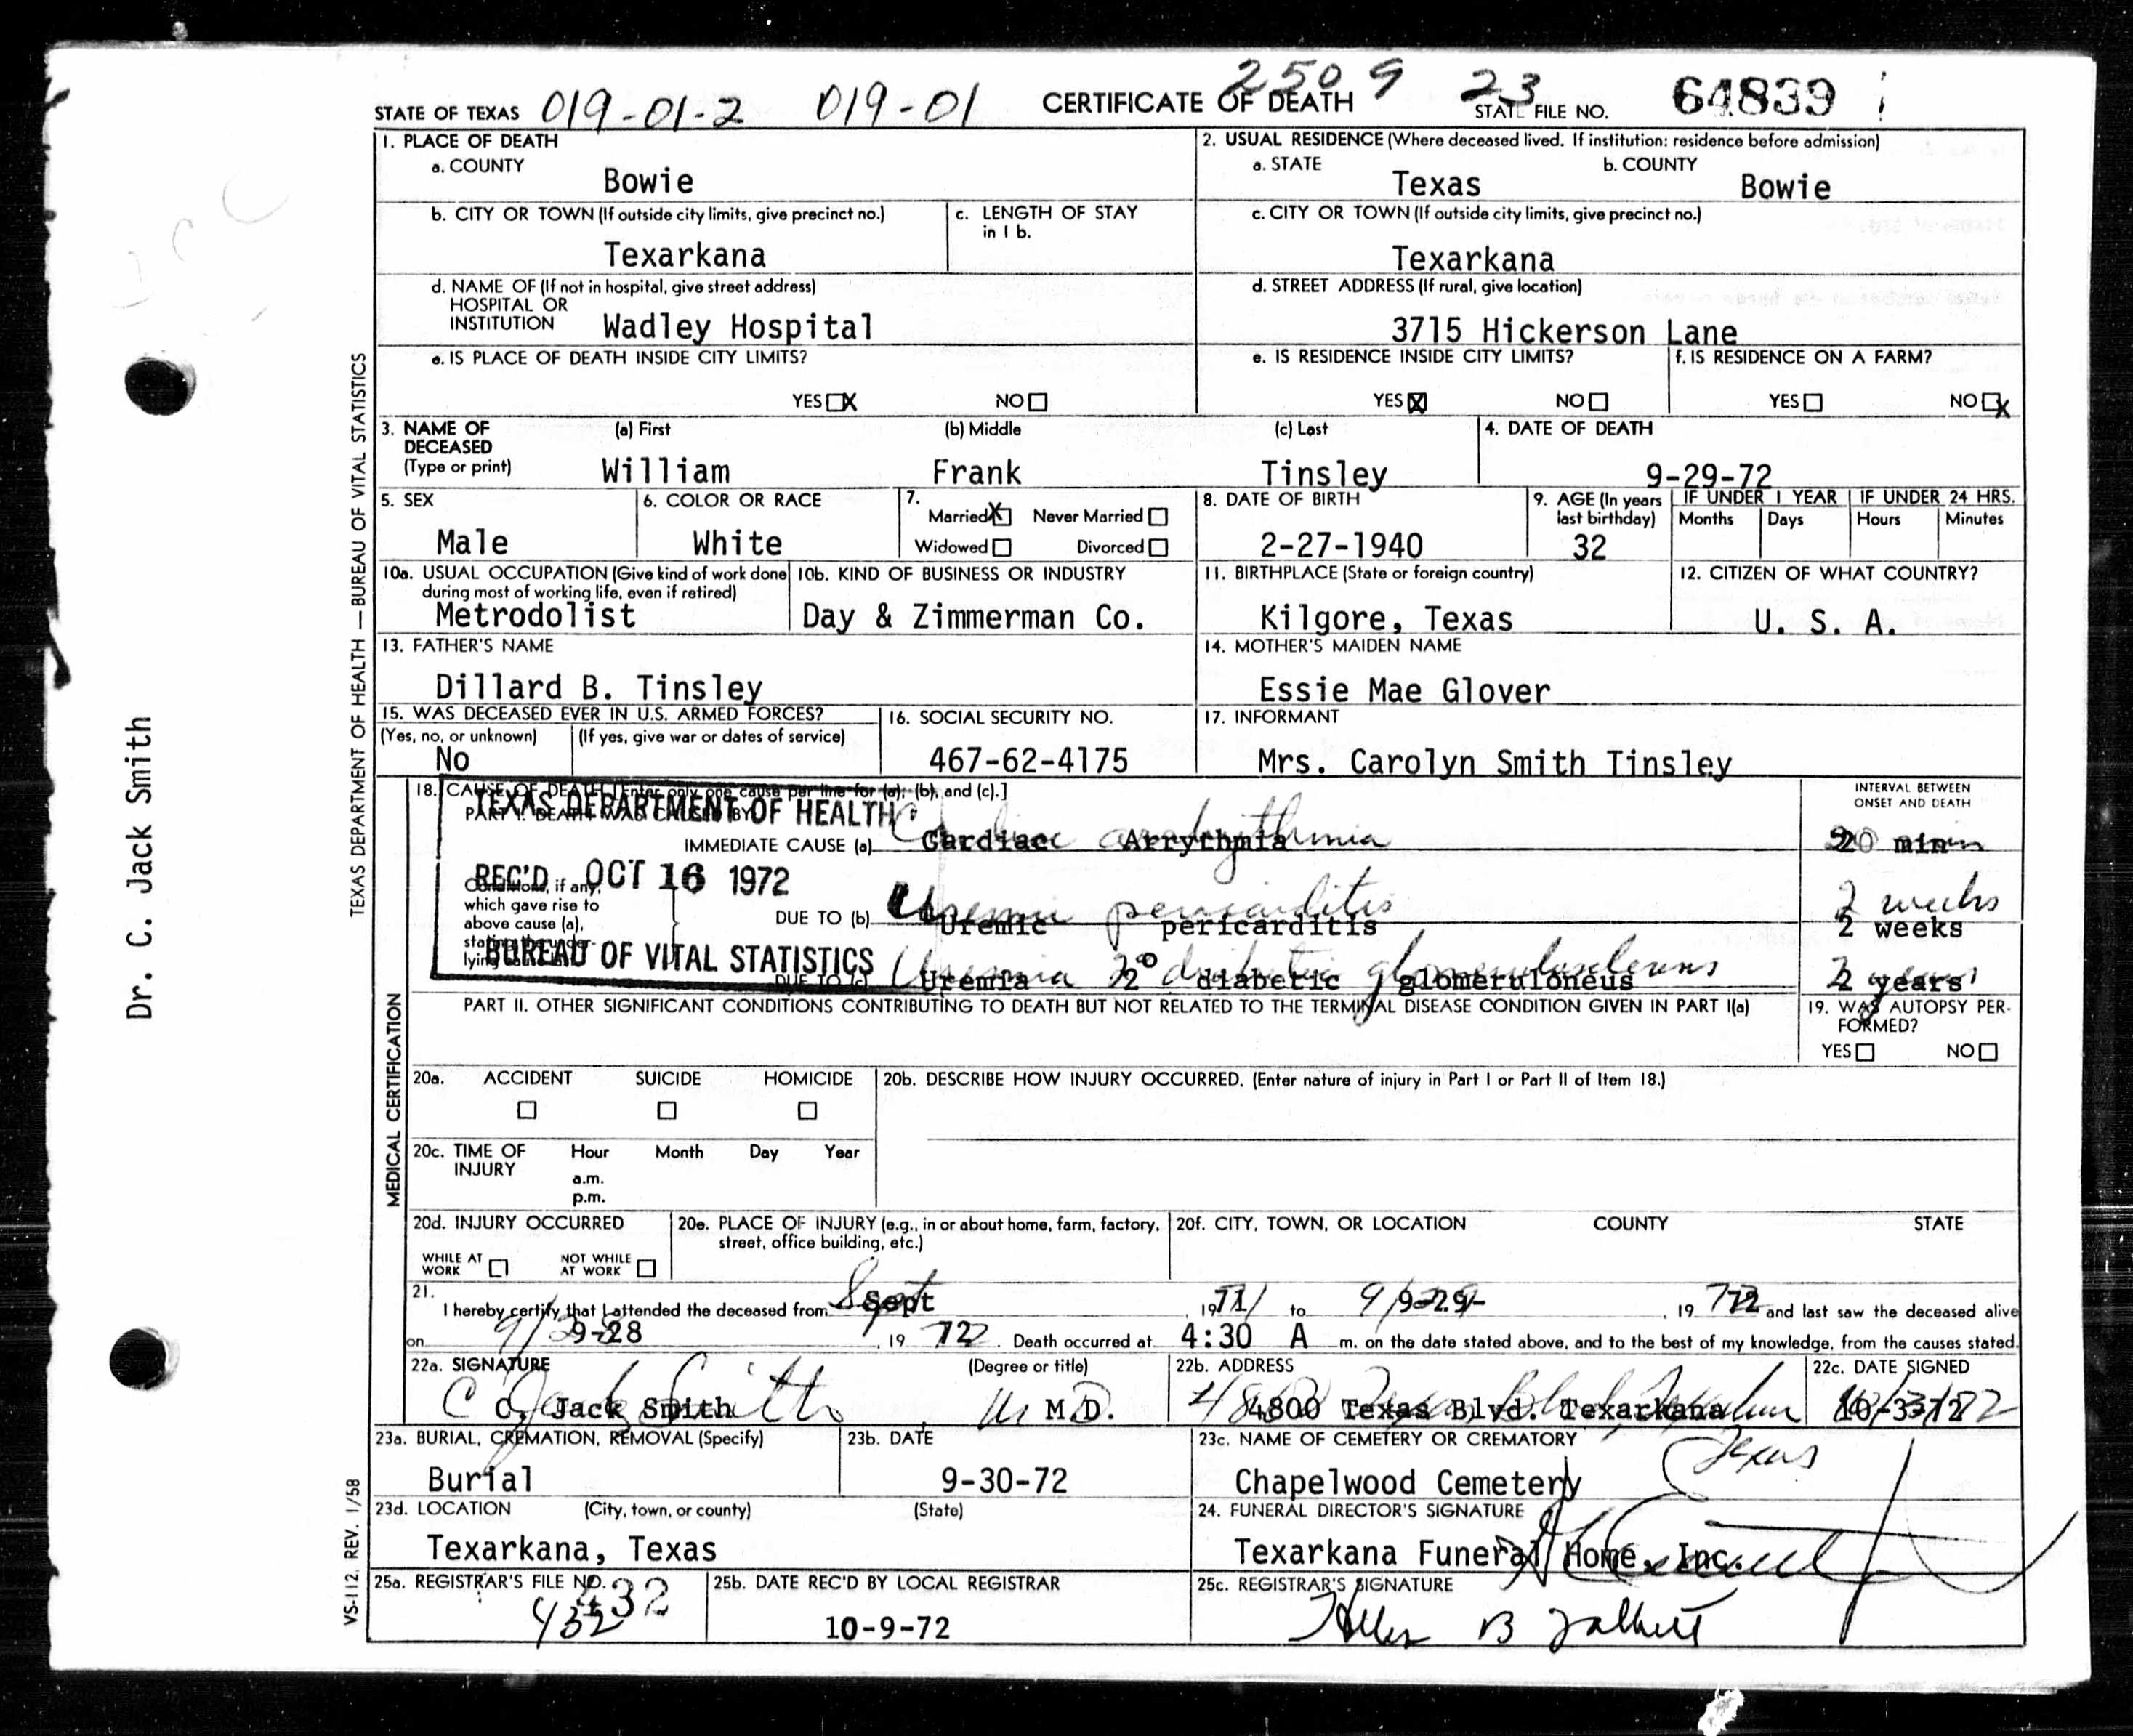 STATE OF TEXAS 019-01-2 019-01 CERTIFICATE OF DEATH 2509 23 STATE FILE NO. 64839
1. PLACE OF DEATH
a. COUNTY
Bowie
2. USUAL RESIDENCE (Where deceased lived. If institution: residence before admission)
a. STATE b. COUNTY
Texas Bowie
b. CITY OR TOWN (If outside city limits, give precinct no.)
Texarkana
c. LENGTH OF STAY
in 1 b.
c. CITY OR TOWN (If outside city limits, give precinct no.)
Texarkana
d. NAME OF (If not in hospital, give street address)
HOSPITAL OR
INSTITUTION Wadley Hospital
d. STREET ADDRESS (If rural, give location)
3715 Hickerson Lane
e. IS PLACE OF DEATH INSIDE CITY LIMITS?
YES X NO
e. IS RESIDENCE INSIDE CITY LIMITS?
YES X NO
f. IS RESIDENCE ON A FARM?
YES NO X
3. NAME OF
DECEASED
(Type or print)
(a) First (b) Middle (c) Last
William Frank Tinsley
4. DATE OF DEATH
9-29-72
5. SEX
Male
6. COLOR OR RACE
White
7.
Married X Never Married
Widowed Divorced
8. DATE OF BIRTH
2-27-1940
9. AGE (In years
last birthday)
32
IF UNDER 1 YEAR
Months Days
IF UNDER 24 HRS.
Hours Minutes
10a. USUAL OCCUPATION (Give kind of work done
during most of working life, even if retired)
Metrodolist
10b. KIND OF BUSINESS OR INDUSTRY
Day & Zimmerman Co.
11. BIRTHPLACE (State or foreign country)
Kilgore, Texas
12. CITIZEN OF WHAT COUNTRY?
U. S. A.
13. FATHER'S NAME
Dillard B. Tinsley
14. MOTHER'S MAIDEN NAME
Essie Mae Glover
15. WAS DECEASED EVER IN U.S. ARMED FORCES?
(Yes, no, or unknown) (If yes, give war or dates of service)
No
16. SOCIAL SECURITY NO.
467-62-4175
17. INFORMANT
Mrs. Carolyn Smith Tinsley
18. CAUSE OF DEATH [Enter only one cause per line for (a), (b), and (c).]
PART I. DEATH WAS CAUSED BY:
TEXAS DEPARTMENT OF HEALTH
REC'D OCT 16 1972
BUREAU OF VITAL STATISTICS
IMMEDIATE CAUSE (a) Cardiac Arrythmia
Conditions, if any,
which gave rise to
above cause (a),
stating the under-
lying cause last.
DUE TO (b) Uremic pericarditis
Uremic pericarditis
DUE TO (c) Uremia 2° diabetic glomeruloneus
INTERVAL BETWEEN
ONSET AND DEATH
20 min
2 weeks
2 weeks
2 years
PART II. OTHER SIGNIFICANT CONDITIONS CONTRIBUTING TO DEATH BUT NOT RELATED TO THE TERMINAL DISEASE CONDITION GIVEN IN PART I(a)
19. WAS AUTOPSY PER-
FORMED?
YES NO
20a. ACCIDENT SUICIDE HOMICIDE
20b. DESCRIBE HOW INJURY OCCURRED. (Enter nature of injury in Part I or Part II of Item 18.)
20c. TIME OF
INJURY
Hour Month Day Year
a.m.
p.m.
20d. INJURY OCCURRED
WHILE AT
WORK
NOT WHILE
AT WORK
20e. PLACE OF INJURY (e.g., in or about home, farm, factory,
street, office building, etc.)
20f. CITY, TOWN, OR LOCATION COUNTY STATE
21.
I hereby certify that I attended the deceased from Sept , 1971 to 9-29- , 19 72 and last saw the deceased alive
on 9-28 , 19 72 . Death occurred at 4:30 A m. on the date stated above, and to the best of my knowledge, from the causes stated.
22a. SIGNATURE (Degree or title)
C. Jack Smith M.D.
22b. ADDRESS
4800 Texas Blvd. Texarkana
Texas
22c. DATE SIGNED
10-3-72
23a. BURIAL, CREMATION, REMOVAL (Specify)
Burial
23b. DATE
9-30-72
23c. NAME OF CEMETERY OR CREMATORY
Chapelwood Cemetery
23d. LOCATION (City, town, or county) (State)
Texarkana, Texas
24. FUNERAL DIRECTOR'S SIGNATURE
Texarkana Funeral Home, Inc.
25a. REGISTRAR'S FILE NO.
432
432
25b. DATE REC'D BY LOCAL REGISTRAR
10-9-72
25c. REGISTRAR'S SIGNATURE
TEXAS DEPARTMENT OF HEALTH — BUREAU OF VITAL STATISTICS
MEDICAL CERTIFICATION
VS-112, REV. 1/58
Dr. C. Jack Smith